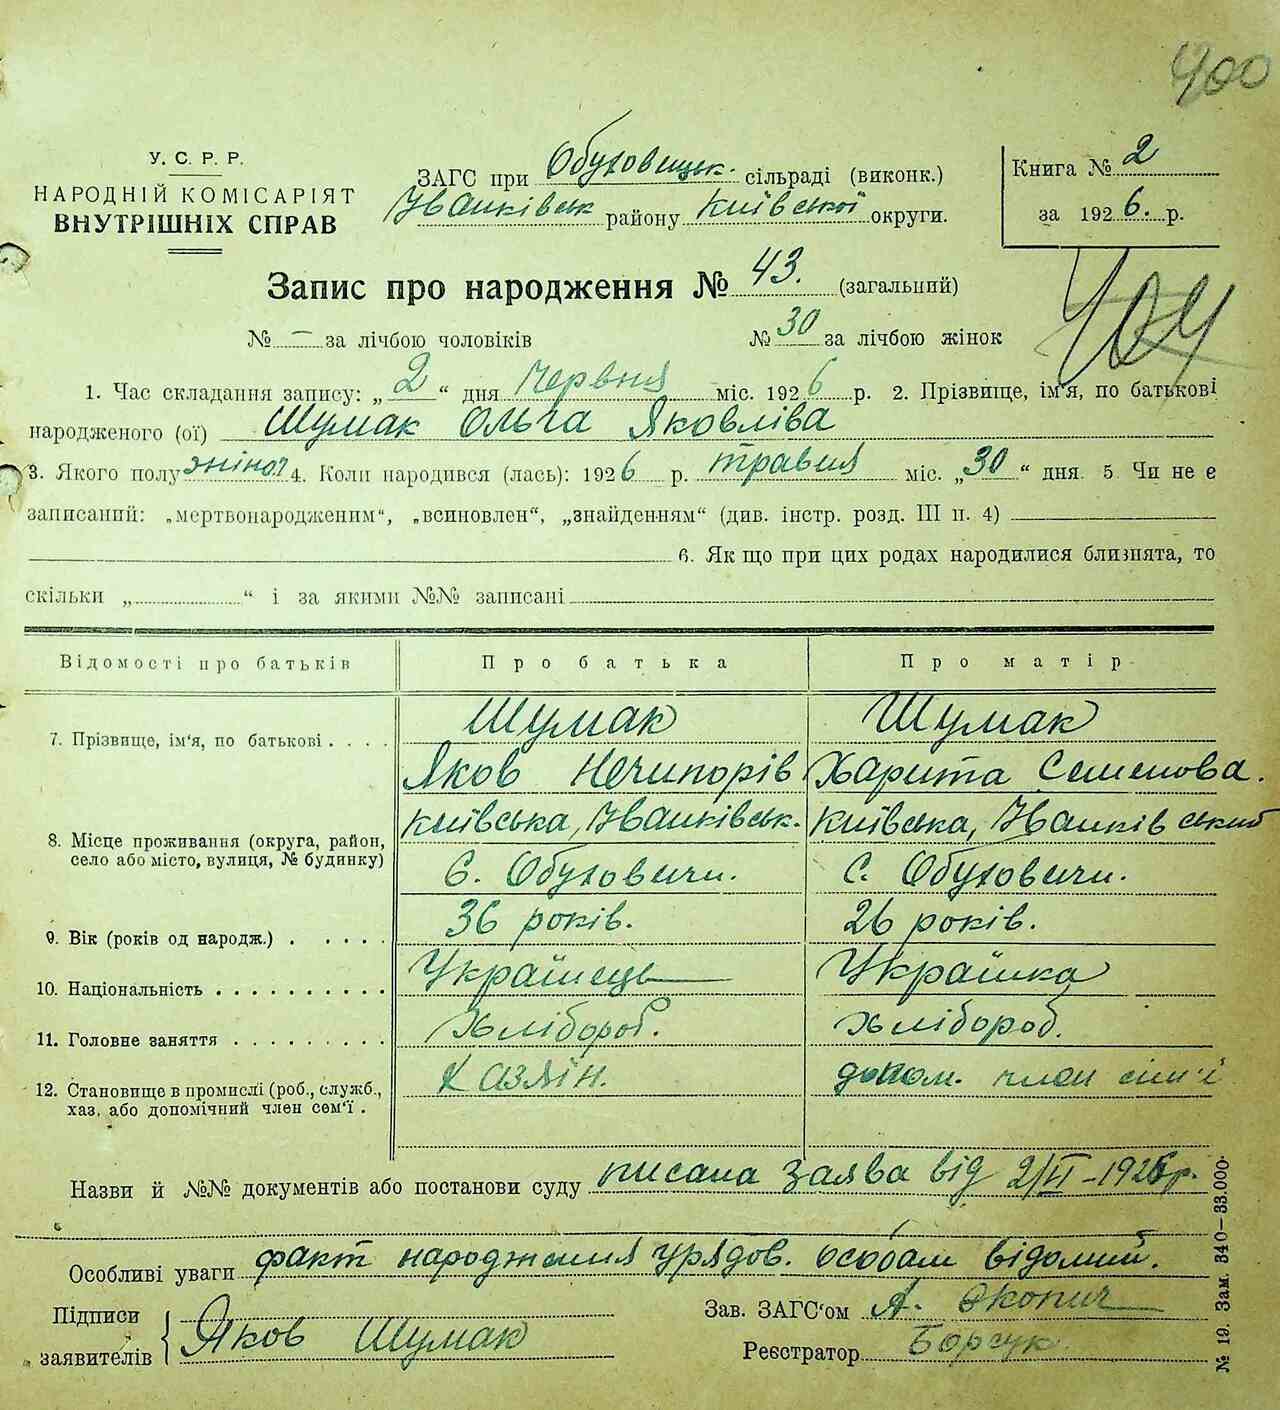 400
У. С. Р. Р.
НАРОДНІЙ КОМІСАРІЯТ
ВНУТРІШНІХ СПРАВ
ЗАГС при Обуховицьк. сільраді (виконк.)
Іванківськ району Київської округи.
Книга № 2
за 1926. р.
Запис про народження № 43. (загальний)
404
№ — за лічбою чоловіків № 30 за лічбою жінок
1. Час складання запису: „2“ дня Червня міс. 1926 р. 2. Прізвище, ім'я, по батькові
народженого (ої) Шумак Ольга Яковліва
3. Якого полу жіноч 4. Коли народився (лась): 1926 р. травня міс. „30“ дня. 5 Чи не є
записаний: „мертвонародженим“, „всиновлен“, „знайденням“ (див. інстр. розд. III п. 4)
6. Як що при цих родах народилися близнята, то
скільки „ “ і за якими №№ записані
Відомості про батьків Про батька Про матір
7. Прізвище, ім'я, по батькові . . . . Шумак Шумак
Яков Нечипорів Харита Семенова.
8. Місце проживання (округа, район, село або місто, вулиця, № будинку) Київська, Іванківськ. Київська, Іванківський
С. Обуховичи. С. Обуховичи.
9. Вік (років од народж.) . . . . . 36 років. 26 років.
10. Національність . . . . . . . . . . Українець Українка
11. Головне заняття . . . . . . . . . Хлібороб. хлібороб.
12. Становище в промислі (роб., служб., хаз. або допомічний член сем'ї . Хазяін. допом. член сім'ї
Назви й №№ документів або постанови суду писана заява від 2/VI – 1926 р.
Особливі уваги факт народження урядов. особам відомий.
Підписи
заявителів Яков Шумак
Зав. ЗАГС'ом А.
Реєстратор Борсук
№ 19. Зам. 340–33.000.